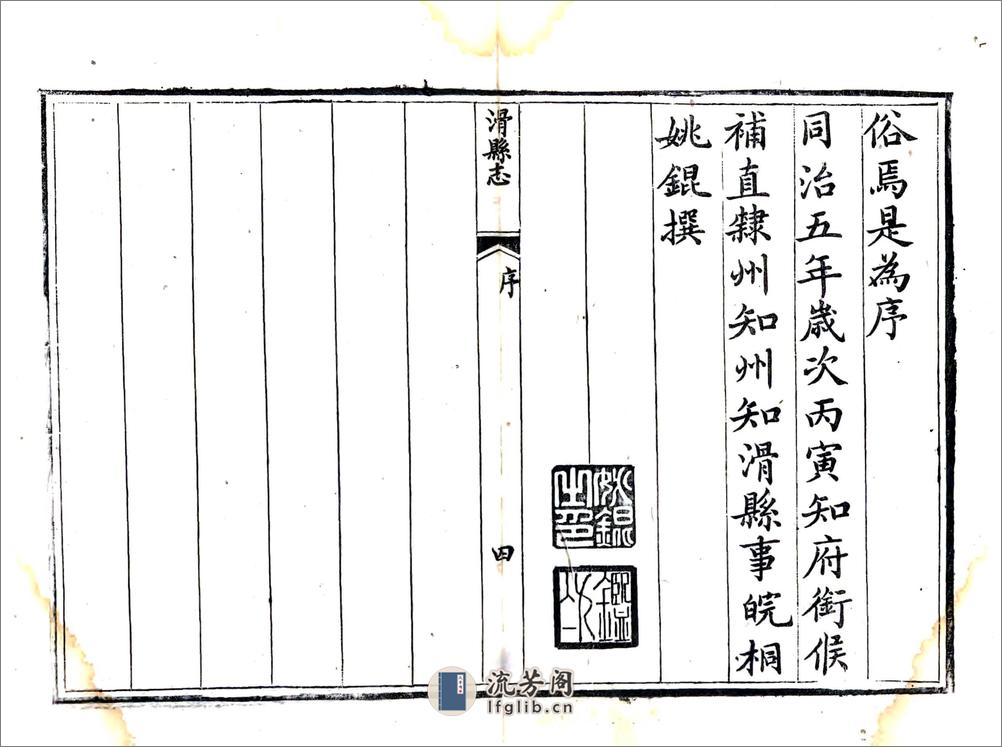 俗焉是為序
同治五年歲次丙寅知府銜候
補直隸州知州知滑縣事皖桐
姚錕撰
姚錕
之印
滑縣志
序
四
流芳阁
lfglib.cn